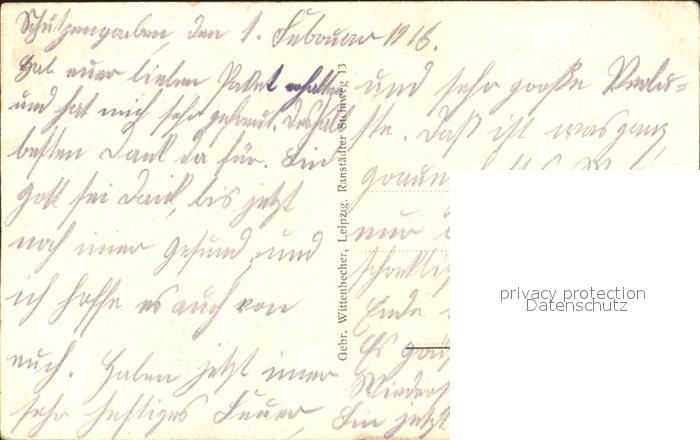 Schützengraben, den 1. Februar 1916.
Hab euer liebes Paket erhalten
und hat mich sehr gefreut. Deshalb
besten Dank da für. Bin
Gott sei Dank, bis jetzt
noch imer gesund, und
ich hoffe es auch von
euch. Haben jetzt imer
sehr heftiges Feuer,
und sehr große Verlu-
ste. Daß ist was ganz
grauen
nur
schrecklig
Ende
Es
Wieders
Bin jetzt
Gebr. Wittenbecher, Leipzig. Ranstädter Steinweg 13
privacy protection
Datenschutz